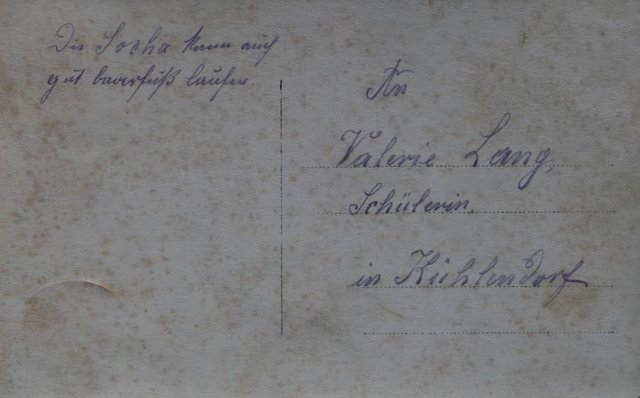 Die Socha kann auch
gut baarfuß laufen.
An
Valerie Lang,
Schülerin,
in Kühlendorf